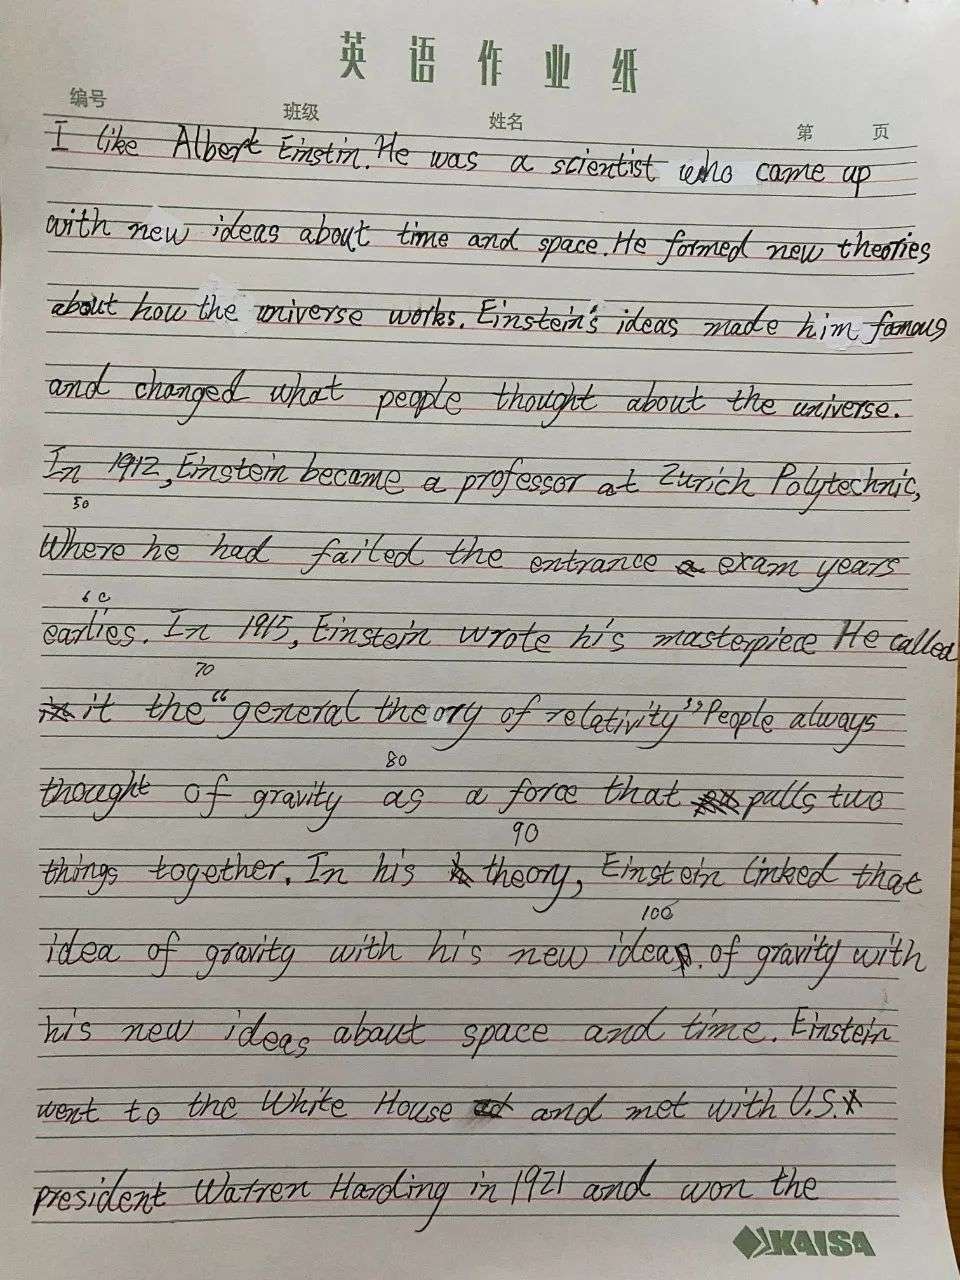 英语作业纸
编号 班级 姓名 第 页
I like Albert Einstin. He was a scientist who came up
with new ideas about time and space. He formed new theories
about how the universe works. Einstein's ideas made him famous
and changed what people thought about the universe.
In 1912, Einstein became a professor at Zurich Polytechnic,
50
Where he had failed the entrance exam years
60
earlies. In 1915, Einstein wrote his masterpiece He called
70
it the "general theory of relativity" People always
80
thought of gravity as a force that pulls two
90
things together. In his theory, Einstein linked that
100
idea of gravity with his new idea. of gravity with
his new ideas about space and time. Einstein
went to the White House and met with U.S.
president Warren Harding in 1921 and won the
KAISA